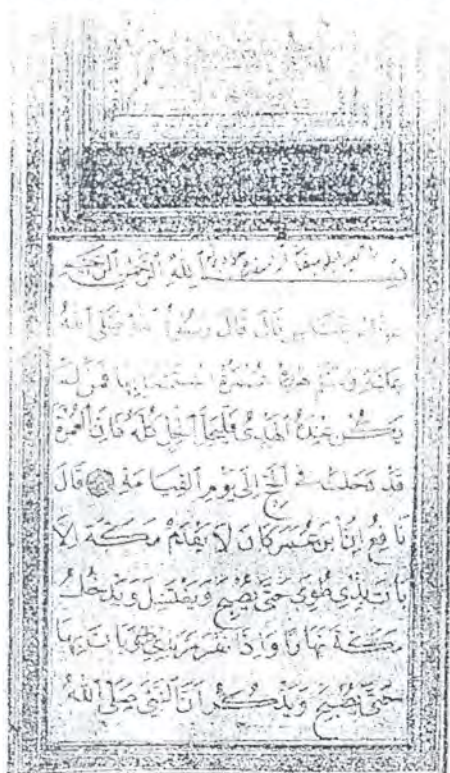 بسم الله الرحمن الرحيم
عباس قال قال رسول الله صلى الله
عليه وسلم هذه عمرة استمتعنا بها فمن لم
يكن عنده الهدي فليحل الحل كله فان العمرة
قد دخلت في الحج الى يوم القيامة قال
نافع ان ابن عمر كان لا يقدم مكة الا
بات بذي طوى حتى يصبح ويغتسل ويدخل
مكة نهارا واذا نفر مر بذي طوى وبات بها
حتى يصبح ويذكر ان النبي صلى الله